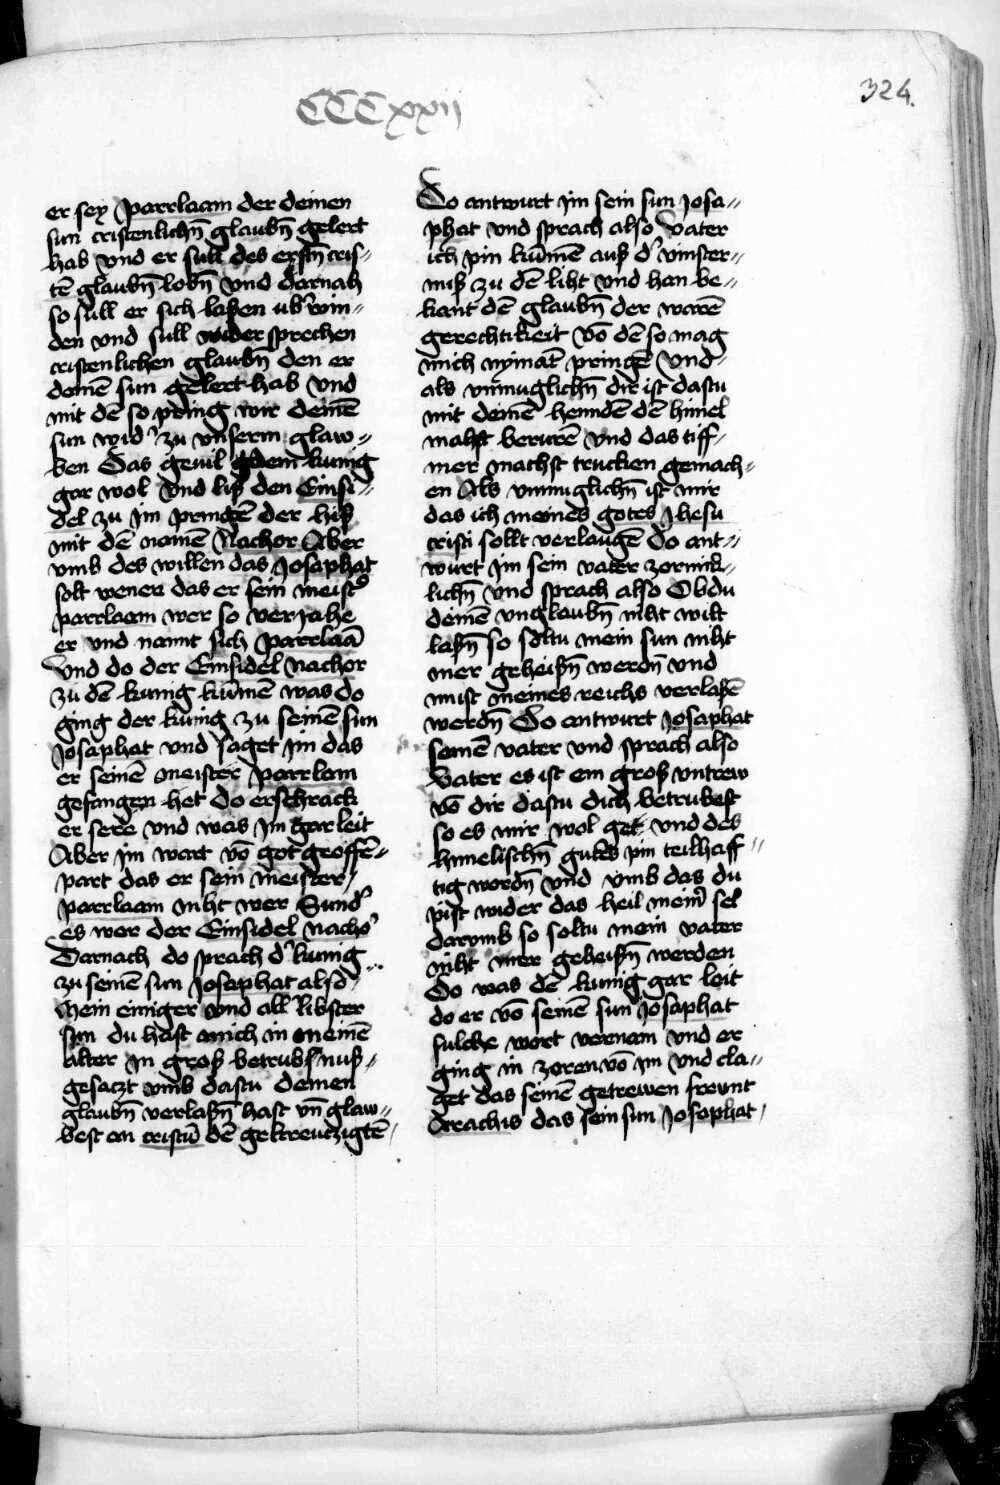 CCCxxij
324.
er sey Parrlaam der deinen
sun cristenlichñ glaubñ gelert
hab vnd er sull des erstñ cris〃
tē glaubñ lobñ vnd darnah
so sull er sich laßen vb᷑win〃
den vnd sull wider sprechen
cristenlichen glaubñ den er
deinē sun gelert hab vnd
mit dē so pring wir deinē
sun wid᷑ zu vnserm glaw〃
ben Das geuil dem kunig
gar wol vnd liß den Einsi〃
del zu Im pringē der hiß
mit dē namē Nachor Aber
vmb des willen das Josaphat
solt wenen das er sein meist᷑
parrlaam wer so verjahe
er vnd nannt sich Parrlaā
Vnd do der Einsidel Nachor
zu dē kunig kumē was do
ging der kunig zu seinē sun
Josaphat vnd saget Im das
er seinē meister parrlam
gefangen het do erschrack
er sere vnd was Im gar leit
Aber Im wart vō got geoffē〃
part das er sein meister
parrlaam niht wer Sund᷑
es wer der Einsidel nacho᷑
Darnach do sprach d᷑ kunig
zu seinē sun Josaphat also
Mein einiger vnd all libster
sun du hast mich in meinē
alter In groß betrubtnuß〃
gesaczt vmb dastu deinen
glaubñ verlaßñ hast vñ glaw〃
best an cristū dē gekreuczigtē
Do antwurt Im sein sun Josa〃
phat vnd sprach also Vater
ich pin kumē auß d᷑ vinster〃
niß zu dē liht vnd han be〃
kant dē glaubñ der warē
gerechtikeit Vō dē so mag
mich nymāt pringē Vnd
als vnmuglichñ dir ist dastu
mit deinē hendē dē himel
mahst berurē Vnd das tiff
mer machst trucken gemach〃
en Als vnmuglichñ ist mir
das ich meines gotes Jhesu
cristi sollt verlaugē Do ant〃
wurt Im sein vater zornick〃
lichñ vnd sprach also Obdu
deinē vnglaubñ niht wilt
laßñ so soltu mein sun niht
mer geheißñ werdñ vnd
must meines reichs verlaßē
werdñ Do antwurt Josaphat
seinē vater vnd sprach also
Vater es ist ein groß vntrew
vō dir dastu dich betrubest
so es mir wol get vnd des
himelischñ gutes pin teilhaff〃
tig wordñ vnd vmb das du
pist wider das heil mein᷑ sel
darvmb so soltu mein vater
niht mer geheißñ werden
Do was dē kunig gar leit
do er vō seinē sun Josaphat
sulche wort vernam vnd er
ging in zoren vō Im vnd cla〃
get das seinē getrewen frewnt
Arachis das sein sun Josaphat